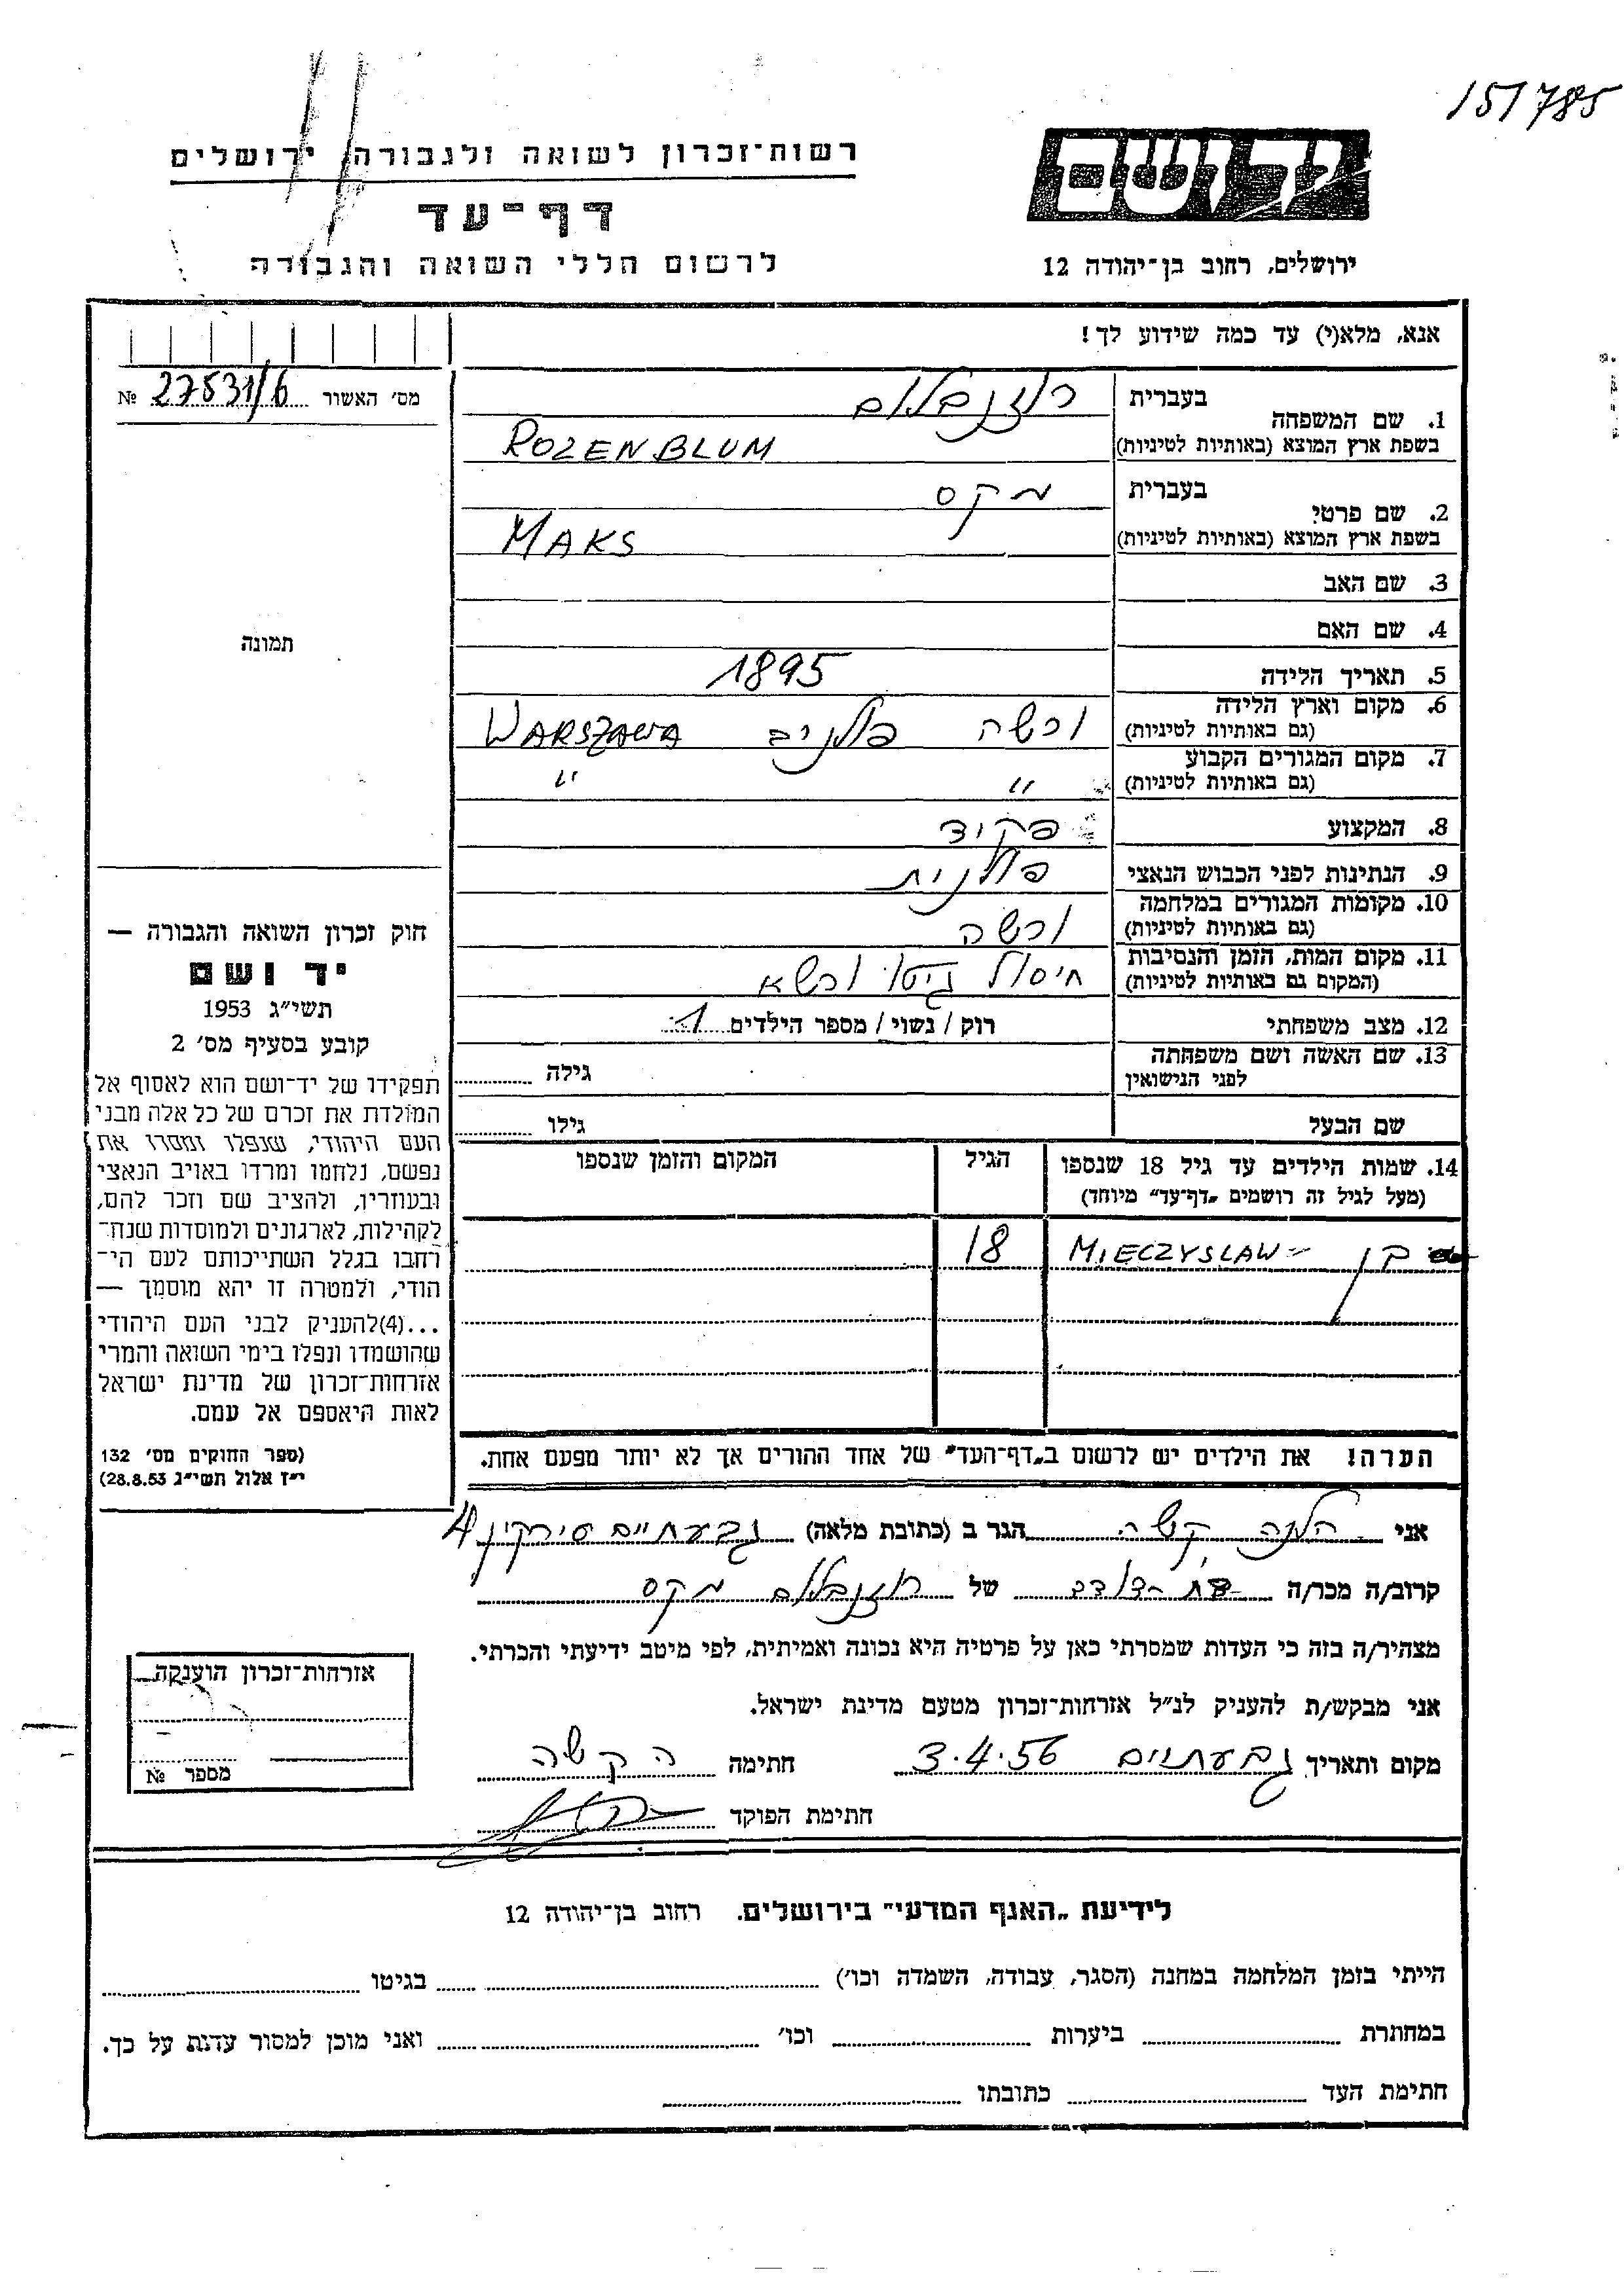 151785
יד ושם
רשות־זכרון לשואה ולגבורה, ירושלים
דף־עד
לרשום חללי השואה והגבורה
ירושלים, רחוב בן־יהודה 12
אנא, מלא(י) עד כמה שידוע לך!
מס׳ האשור 27531/6 №
תמונה
1. שם המשפחה
בעברית רוזנבלום
בשפת ארץ המוצא (באותיות לטיניות) ROZENBLUM
2. שם פרטי
בעברית מקס
בשפת ארץ המוצא (באותיות לטיניות) MAKS
3. שם האב
4. שם האם
5. תאריך הלידה 1895
6. מקום וארץ הלידה
(גם באותיות לטיניות) ורשה פולניה WARSZAWA
7. מקום המגורים הקבוע
(גם באותיות לטיניות) " "
8. המקצוע פקיד
9. הנתינות לפני הכבוש הנאצי פולנית
10. מקומות המגורים במלחמה
(גם באותיות לטיניות) ורשה
11. מקום המות, הזמן והנסיבות
(המקום גם באותיות לטיניות) חיסול גיטו ורשא
12. מצב משפחתי רוק / נשוי / מספר הילדים 1
13. שם האשה ושם משפחתה
לפני הנישואין גילה
שם הבעל גילו
14. שמות הילדים עד גיל 18 שנספו הגיל המקום והזמן שנספו
(מעל לגיל זה רושמים „דף־עד״ מיוחד)
בן MIECZYSLAW 18
הערה! את הילדים יש לרשום ב„דף־העד״ של אחד ההורים אך לא יותר מפעם אחת.
חוק זכרון השואה והגבורה —
יד ושם
תשי״ג 1953
קובע בסעיף מס׳ 2
תפקידו של יד־ושם הוא לאסוף אל
המולדת את זכרם של כל אלה מבני
העם היהודי, שנפלו ומסרו את
נפשם, נלחמו ומרדו באויב הנאצי
ובעוזריו, ולהציב שם וזכר להם,
לקהילות, לארגונים ולמוסדות שנח־
רחבו בגלל השתייכותם לעם הי־
הודי, ולמטרה זו יהא מוסמך —
...(4)להעניק לבני העם היהודי
שהושמדו ונפלו בימי השואה והמרי
אזרחות־זכרון של מדינת ישראל
לאות היאספם אל עמם.
(ספר החוקים מס׳ 132
י״ז אלול תשי״ג 28.8.53)
אני הלנה קשה הגר ב (כתובת מלאה) גבעתיים סירקין 4
קרוב/ה מכר/ה בת-דודה של רוזנבלום מקס
מצהיר/ה בזה כי העדות שמסרתי כאן על פרטיה היא נכונה ואמיתית, לפי מיטב ידיעתי והכרתי.
אני מבקש/ת להעניק לנ״ל אזרחות־זכרון מטעם מדינת ישראל.
מקום ותאריך גבעתיים 3.4.56 חתימה ה קשה
חתימת הפוקד
אזרחות־זכרון הוענקה
מספר №
לידיעת „האגף המדעי״ בירושלים. רחוב בן־יהודה 12
הייתי בזמן המלחמה במחנה (הסגר, עבודה, השמדה וכו׳) בגיטו
במחתרת ביערות וכו׳ ואני מוכן למסור עדות על כך.
חתימת העד כתובתו